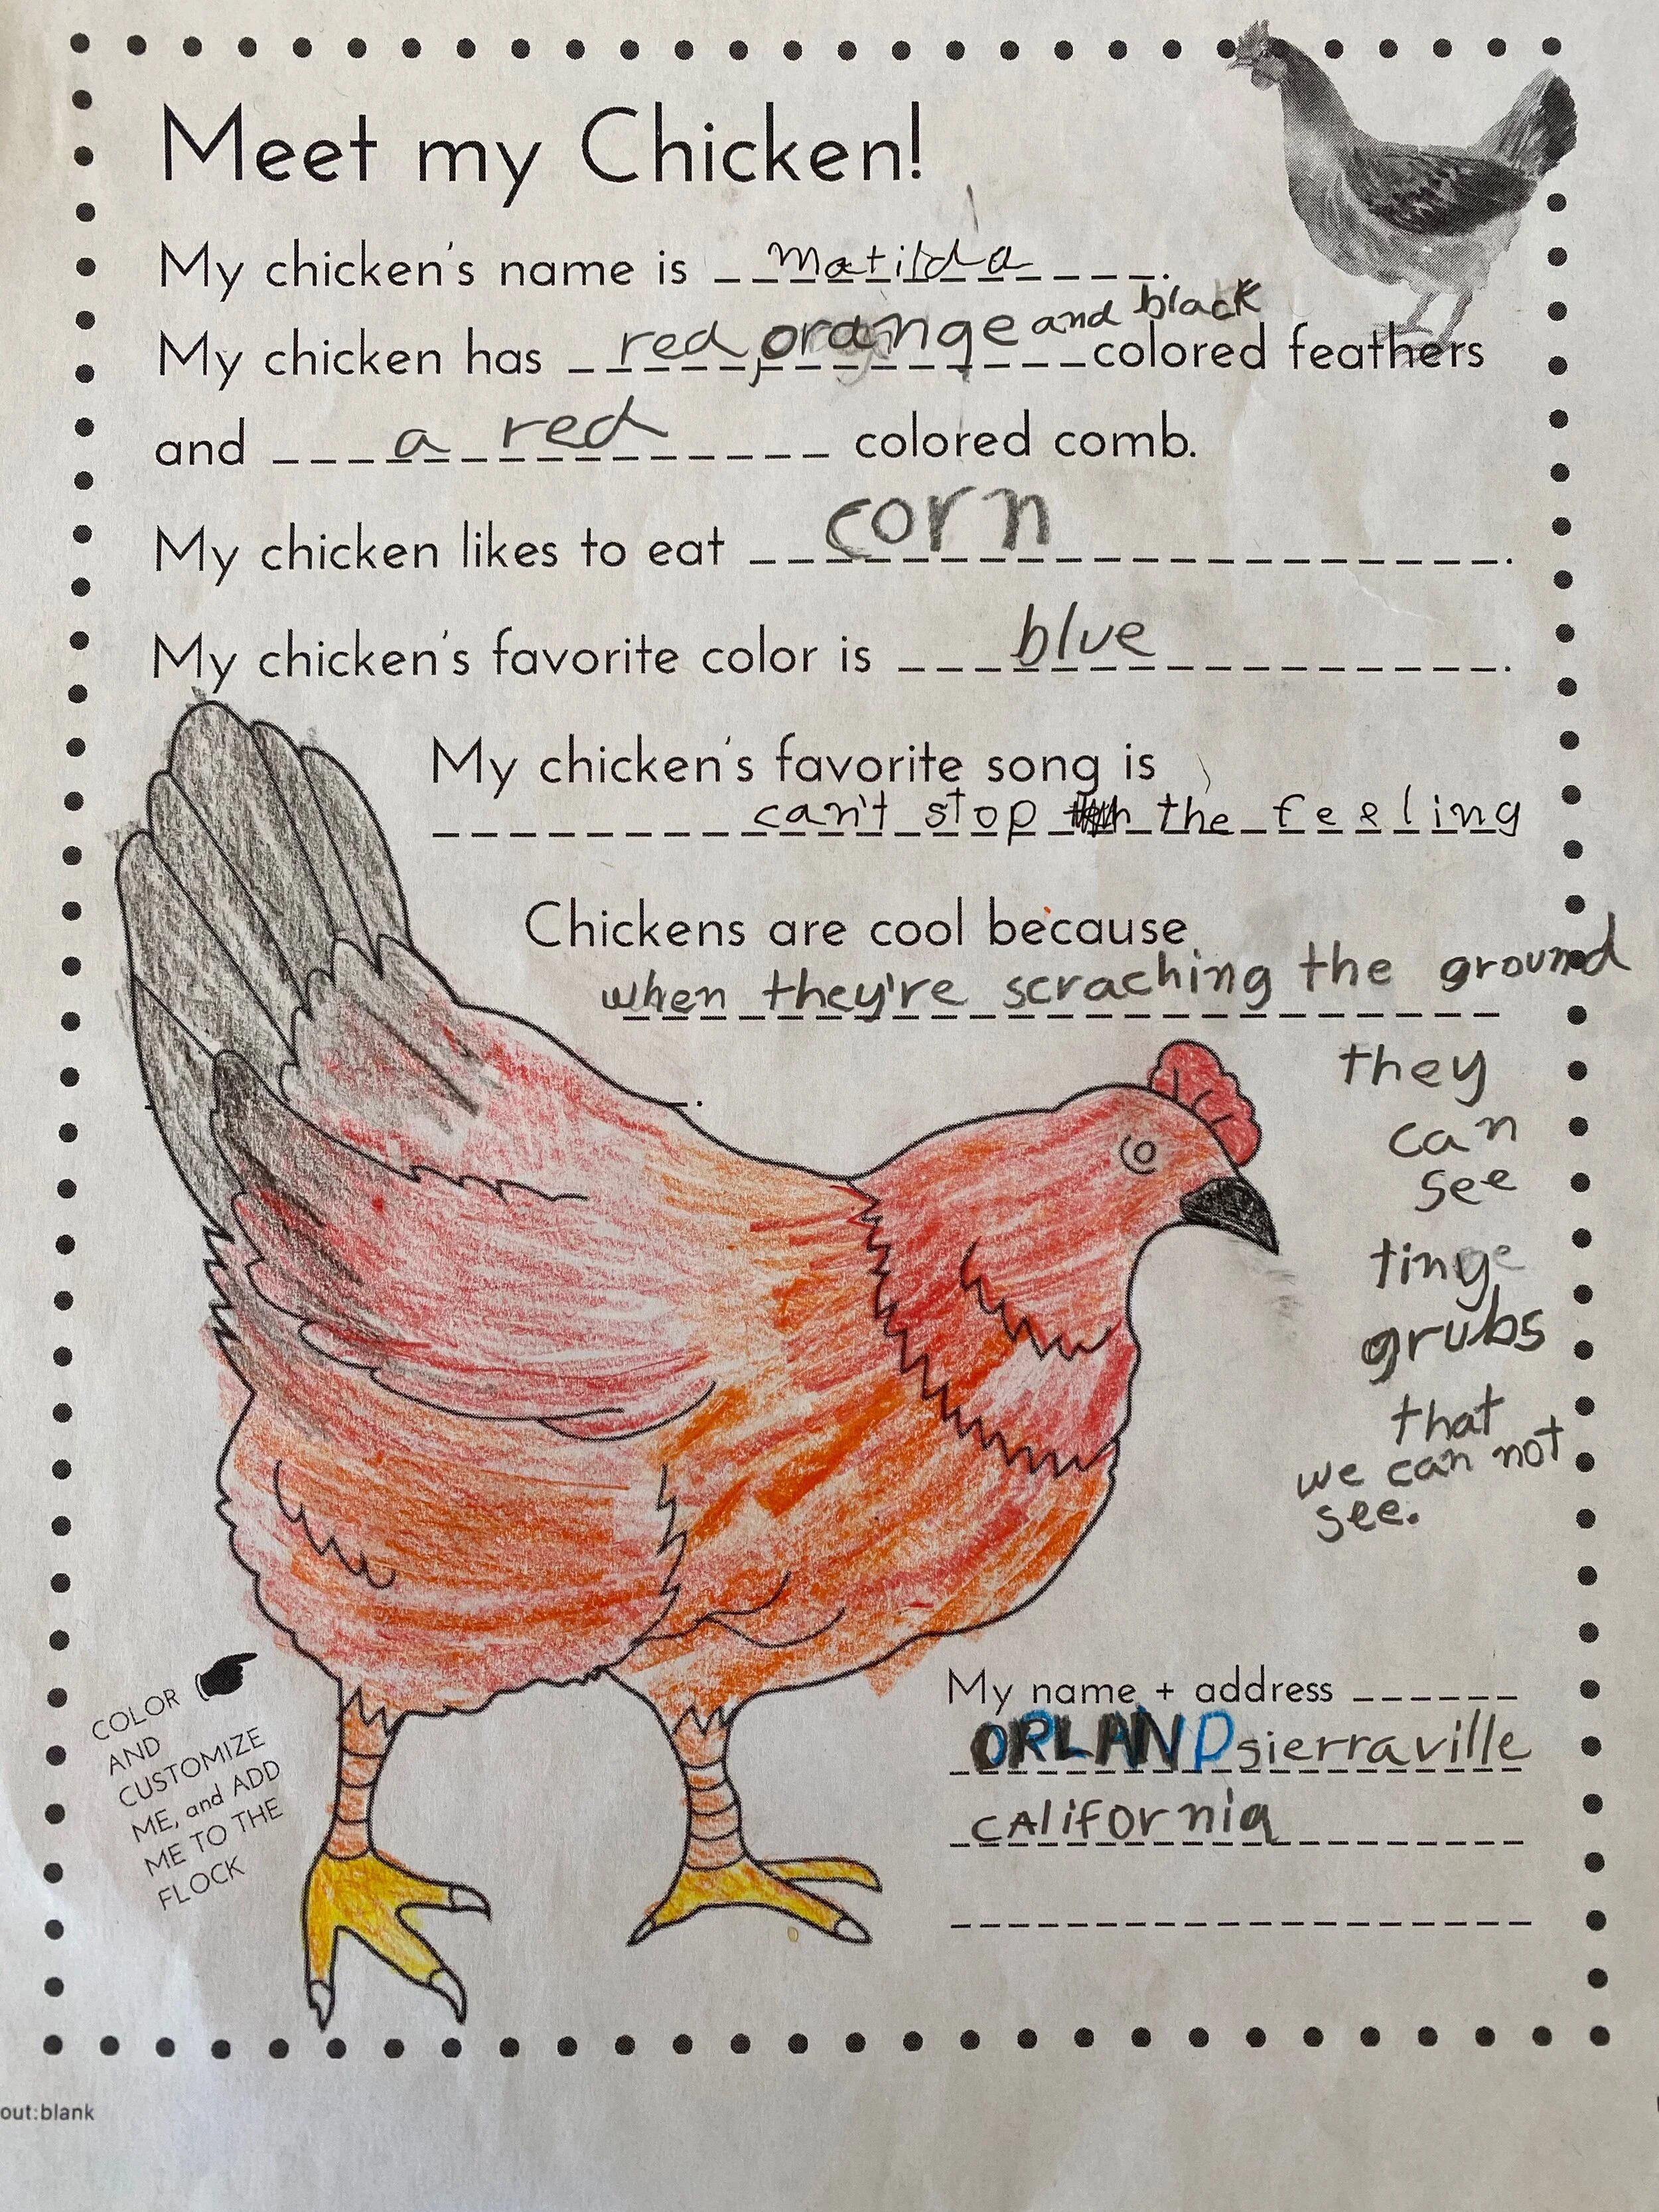 Meet my Chicken!
My chicken's name is matilda.
My chicken has red, orange and black colored feathers
and a red colored comb.
My chicken likes to eat corn.
My chicken's favorite color is blue.
My chicken's favorite song is
can't stop the feeling
Chickens are cool because
when they're scraching the ground
they
can
see
tiny
grubs
that
we can not
see.
My name + address
ORLAND sierraville
CAlifornia
COLOR
AND
CUSTOMIZE
ME, and ADD
ME TO THE
FLOCK
out:blank